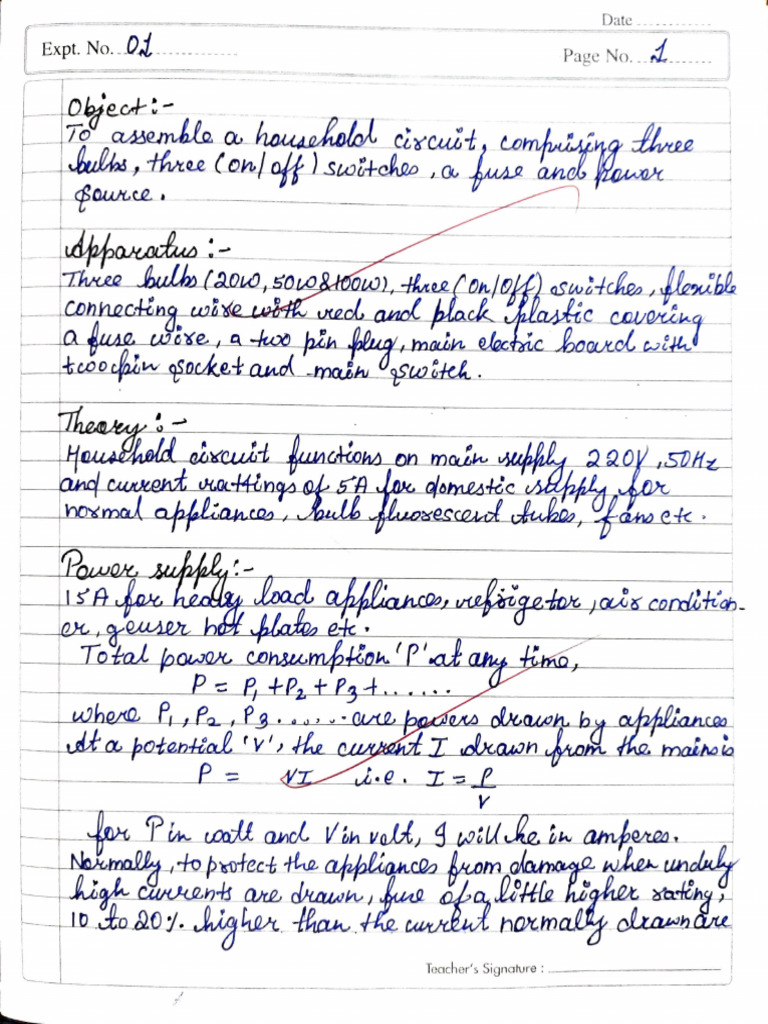 Date ............
Expt. No. 01 ............
Page No. 1 ............
Object :-
To assemble a household circuit, comprising three
bulbs, three (on/off) switches, a fuse and power
source.
Apparatus :-
Three bulbs (20W, 50W & 100W), three (on/off) switches, flexible
connecting wire with red and plack plastic covering
a fuse wire, a two pin plug, main electric board with
two pin socket and main switch.
Theory :-
Household circuit functions on main supply 220V, 50Hz
and current rattings of 5A for domestic supply for
normal appliances, bulb fluorescent tubes, fans etc.
Power supply :-
15A for heavy load appliances, refrigetor, air condition-
er, geuser hot plates etc.
Total power consumption 'P' at any time,
P = P₁ + P₂ + P₃ + ......
where P₁, P₂, P₃ ...... are powers drawn by appliances
At a potential 'V', the current I drawn from the mains is
P = VI i.e. I = P/V
for P in watt and V in volt, I will be in amperes.
Normally, to protect the appliances from damage when unduly
high currents are drawn, fuse of a little higher rating,
10 to 20% higher than the current normally drawn are
Teacher's Signature : ____________